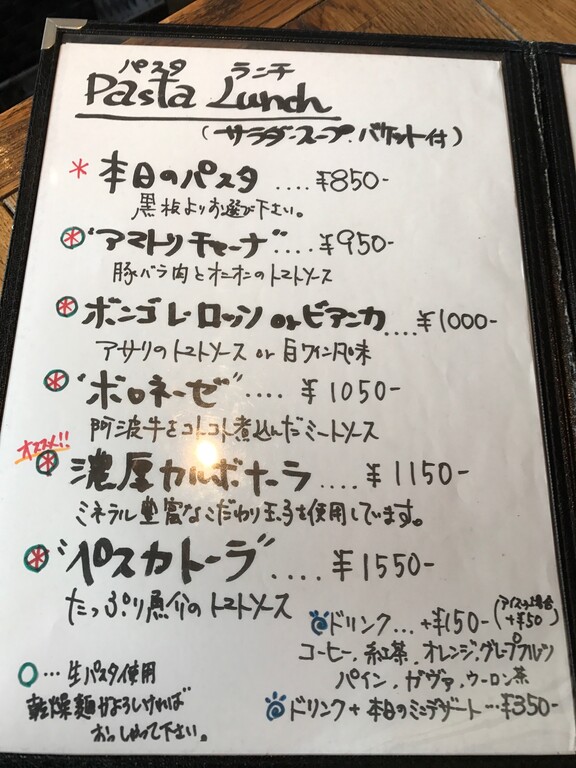 パスタ ランチ
Pasta Lunch
(サラダ・スープ・バケット付)
* 本日のパスタ ....¥850-
黒板よりお選び下さい。
* "アマトリチャーナ"....¥950-
豚バラ肉とオニオンのトマトソース
* ボンゴレ・ロッソ or ビアンカ....¥1000-
アサリのトマトソース or 白ワイン風味
* "ボロネーゼ"....¥1050-
阿波牛をコトコト煮込んだミートソース
オススメ!!
* 濃厚カルボナーラ....¥1150-
ミネラル豊富なこだわり玉子を使用しています。
* "ペスカトーラ"....¥1550-
たっぷり魚介のトマトソース
ドリンク...+¥150- (アイスの場合+¥50)
コーヒー, 紅茶, オレンジ, グレープフルーツ
パイン, グァヴァ, ウーロン茶
ドリンク+本日のミニデザート...¥350-
○...生パスタ使用
乾燥麺がよろしければ
おっしゃって下さい。